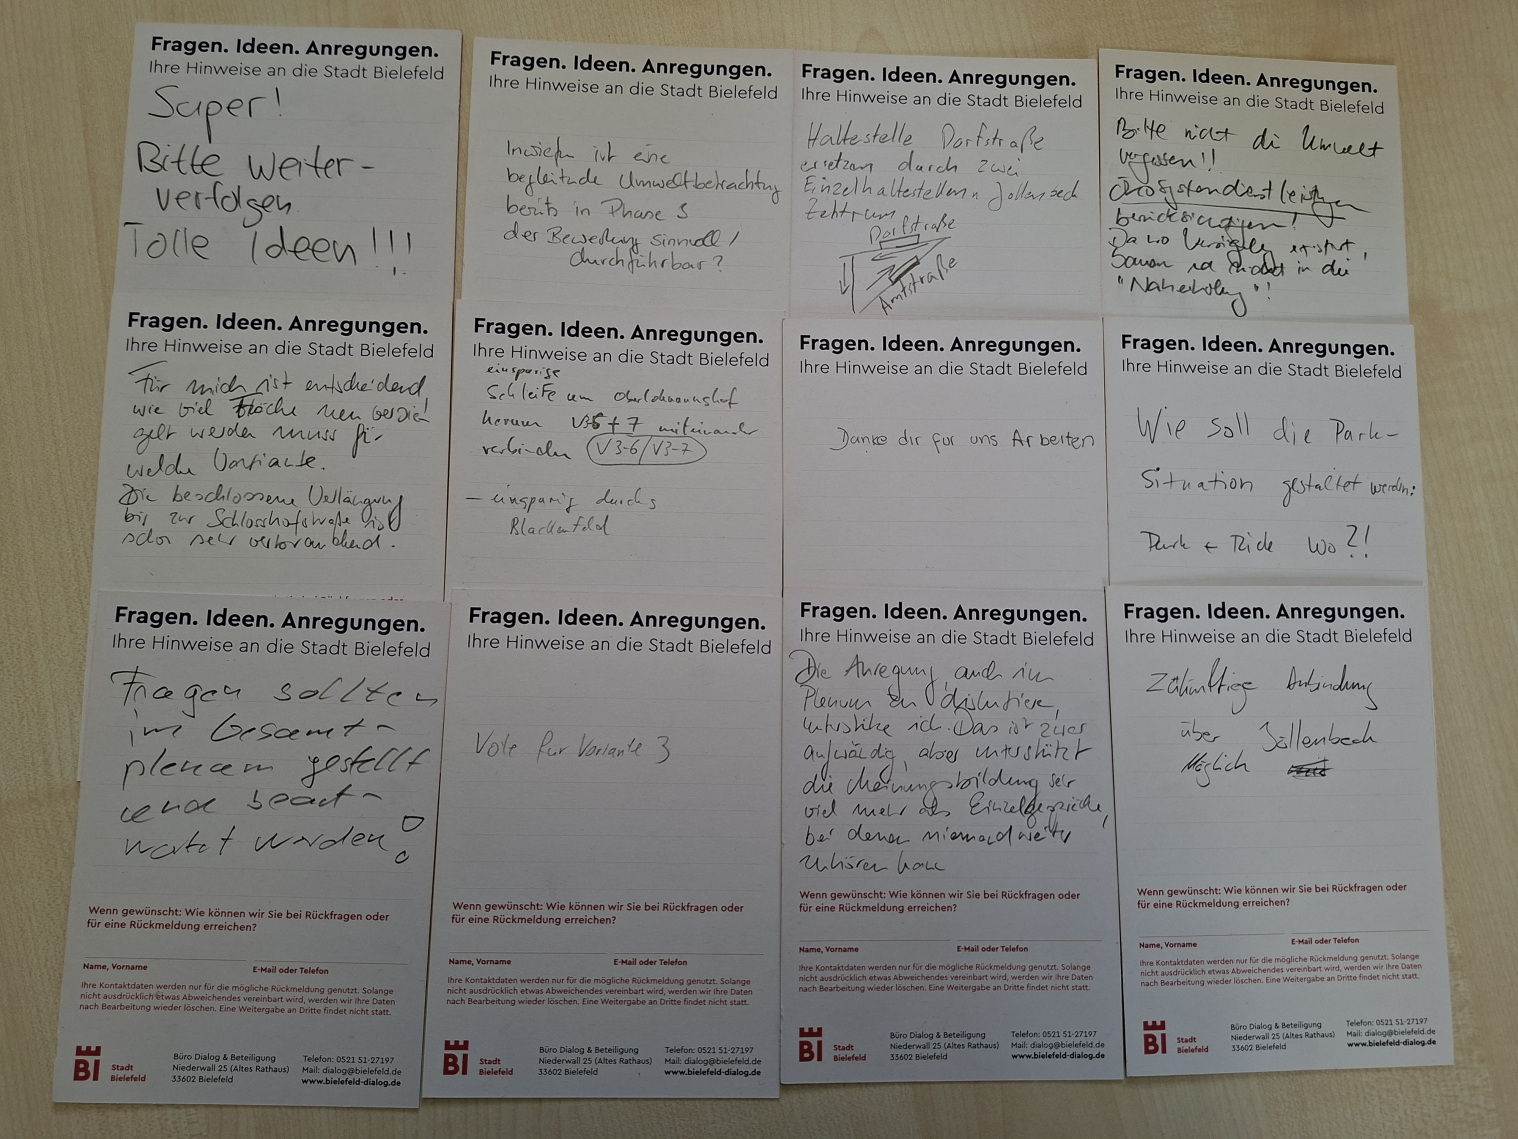 Fragen. Ideen. Anregungen.
Ihre Hinweise an die Stadt Bielefeld
Super!
Bitte weiter-
verfolgen
Tolle Ideen!!!
Fragen. Ideen. Anregungen.
Ihre Hinweise an die Stadt Bielefeld
Inwiefern ist eine
begleitende Umweltbetrachtung
bereits in Phase 3
der Bewertung sinnvoll /
durchführbar?
Fragen. Ideen. Anregungen.
Ihre Hinweise an die Stadt Bielefeld
Haltestelle Dorfstraße
ersetzen durch zwei
Einzelhaltestellen Jöllenbeck
Zentrum
Dorfstraße
Amtstraße
Fragen. Ideen. Anregungen.
Ihre Hinweise an die Stadt Bielefeld
Bitte nicht die Umwelt
vergessen!!
Ökosystemdienstleistungen
berücksichtigen!
Da wo
bauen in die
"Naherholung"!
Fragen. Ideen. Anregungen.
Ihre Hinweise an die Stadt Bielefeld
Für mich ist entscheidend,
wie viel Fläche neu versie-
gelt werden muss für
welche Variante.
Die beschlossene Verlängerung
bis zur Schlosshofstraße ist
schon sehr
Fragen. Ideen. Anregungen.
Ihre Hinweise an die Stadt Bielefeld
einspurige
Schleife um Oberlohmannshof
herum V36 + 7 miteinander
verbinden (V3-6/V3-7)
- einspurig durchs
Blackenfeld
Fragen. Ideen. Anregungen.
Ihre Hinweise an die Stadt Bielefeld
Danke dir für uns Arbeiten
Fragen. Ideen. Anregungen.
Ihre Hinweise an die Stadt Bielefeld
Wie soll die Park-
Situation gestaltet werden?
Park + Ride wo?!
Fragen. Ideen. Anregungen.
Ihre Hinweise an die Stadt Bielefeld
Fragen sollten
im Gesamt-
plenum gestellt
und beant-
wortet werden!
Wenn gewünscht: Wie können wir Sie bei Rückfragen oder
für eine Rückmeldung erreichen?
Name, Vorname E-Mail oder Telefon
Ihre Kontaktdaten werden nur für die mögliche Rückmeldung genutzt. Solange
nicht ausdrücklich etwas Abweichendes vereinbart wird, werden wir Ihre Daten
nach Bearbeitung wieder löschen. Eine Weitergabe an Dritte findet nicht statt.
BI Stadt Bielefeld
Büro Dialog & Beteiligung Telefon: 0521 51-27197
Niederwall 25 (Altes Rathaus) Mail: dialog@bielefeld.de
33602 Bielefeld www.bielefeld-dialog.de
Fragen. Ideen. Anregungen.
Ihre Hinweise an die Stadt Bielefeld
Vote für Variante 3
Wenn gewünscht: Wie können wir Sie bei Rückfragen oder
für eine Rückmeldung erreichen?
Name, Vorname E-Mail oder Telefon
Ihre Kontaktdaten werden nur für die mögliche Rückmeldung genutzt. Solange
nicht ausdrücklich etwas Abweichendes vereinbart wird, werden wir Ihre Daten
nach Bearbeitung wieder löschen. Eine Weitergabe an Dritte findet nicht statt.
BI Stadt Bielefeld
Büro Dialog & Beteiligung Telefon: 0521 51-27197
Niederwall 25 (Altes Rathaus) Mail: dialog@bielefeld.de
33602 Bielefeld www.bielefeld-dialog.de
Fragen. Ideen. Anregungen.
Ihre Hinweise an die Stadt Bielefeld
Die Anregung, auch im
Plenum zu diskutieren,
unterstütze ich. Das ist zwar
aufwändig, aber unterstützt
die Meinungsbildung sehr
viel mehr als Einzelgespräche,
bei denen niemand weiter
zuhören kann
Wenn gewünscht: Wie können wir Sie bei Rückfragen oder
für eine Rückmeldung erreichen?
Name, Vorname E-Mail oder Telefon
Ihre Kontaktdaten werden nur für die mögliche Rückmeldung genutzt. Solange
nicht ausdrücklich etwas Abweichendes vereinbart wird, werden wir Ihre Daten
nach Bearbeitung wieder löschen. Eine Weitergabe an Dritte findet nicht statt.
BI Stadt Bielefeld
Büro Dialog & Beteiligung Telefon: 0521 51-27197
Niederwall 25 (Altes Rathaus) Mail: dialog@bielefeld.de
33602 Bielefeld www.bielefeld-dialog.de
Fragen. Ideen. Anregungen.
Ihre Hinweise an die Stadt Bielefeld
Zukünftige Anbindung
über Jöllenbeck
Möglich
Wenn gewünscht: Wie können wir Sie bei Rückfragen oder
für eine Rückmeldung erreichen?
Name, Vorname E-Mail oder Telefon
Ihre Kontaktdaten werden nur für die mögliche Rückmeldung genutzt. Solange
nicht ausdrücklich etwas Abweichendes vereinbart wird, werden wir Ihre Daten
nach Bearbeitung wieder löschen. Eine Weitergabe an Dritte findet nicht statt.
BI Stadt Bielefeld
Büro Dialog & Beteiligung Telefon: 0521 51-27197
Niederwall 25 (Altes Rathaus) Mail: dialog@bielefeld.de
33602 Bielefeld www.bielefeld-dialog.de